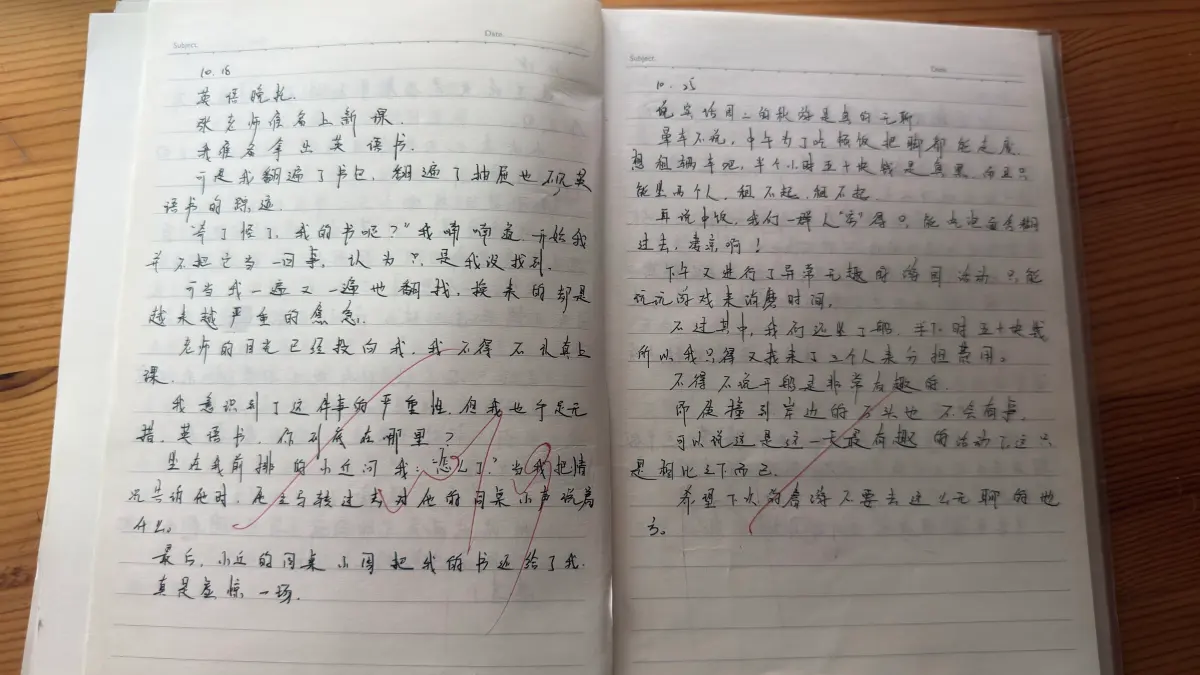 Subject.
Date.
10.18
英语晚托.
张老师准备上新课.
我准备拿出英语书.
于是我翻遍了书包,翻遍了抽屉也不见英
语书的踪迹.
我的书呢?"我喃喃道.开始我
并不把它当一回事,认为只是我没找到.
可当我一遍又一遍地翻找,换来的却是
越来越严重的焦急.
老师的目光已经投向我,我不得不认真上
课.
我意识到了这件事的严重性,但我也手足无
措.英语书,你到底在哪里?
坐在我前排的小丘问我:"怎么了?"当我把情
况告诉他时,他转过去对他的同桌小声说着
什么。
最后,小丘的同桌小周把我的书还给了我.
真是虚惊一场.
Subject.
Date.
10.25
说实话周二的秋游是真的无聊.
晕车不说,中午为了吃顿饭把脚都能走废.
想租辆车吧,半个小时五十块钱是真黑,而且只
能坐两个人,租不起,租不起.
再说中饭,我们一群人"穷"得只能
过去,凄凉啊!
下午又进行了异常无趣的游园活动,只能
玩玩游戏来消磨时间.
不过其中,我们还坐了船,半小时五十块钱
所以我只得又找来了三个人来分担费用。
不得不说开船是非常有趣的.
即使撞到岸边的石头也不会有事.
可以说这是这一天最有趣的活动了,这只
是对比之下而已.
希望下次的春游不要去这么无聊的地
方。